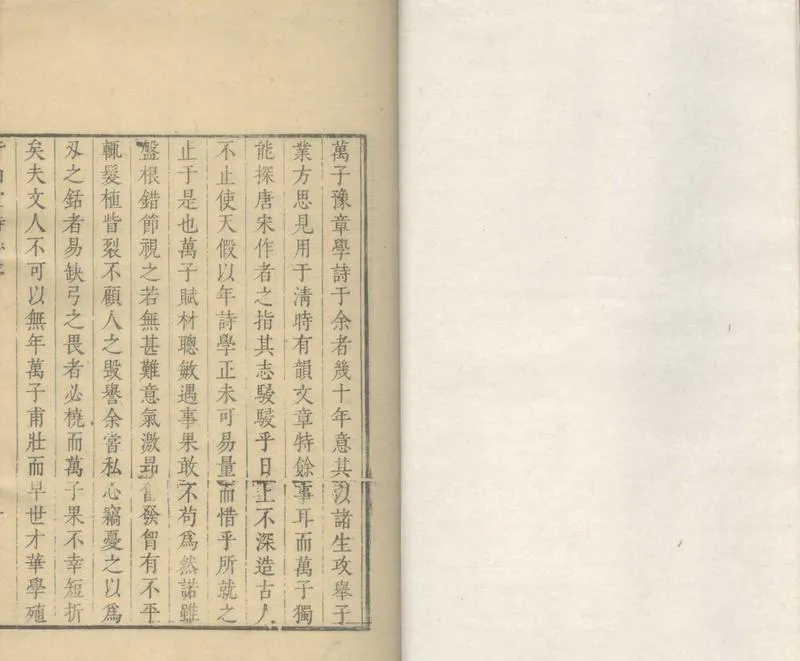 萬子豫章學詩于余者幾十年意其以諸生攻舉子
業方思見用于淸時有韻文章特餘事耳而萬子獨
能探唐宋作者之指其志駸駸乎日上不深造古人
不止使天假以年詩學正未可易量而惜乎所就之
止于是也萬子賦材聰敏遇事果敢不苟爲然諾雖
盤根錯節視之若無甚難意氣激昻奮發胷有不平
輒髮植眥裂不顧人之毀譽余嘗私心竊憂之以爲
刄之銛者易缺弓之畏者必橈而萬子果不幸短折
矣夫文人不可以無年萬子甫壯而早世才華學殖